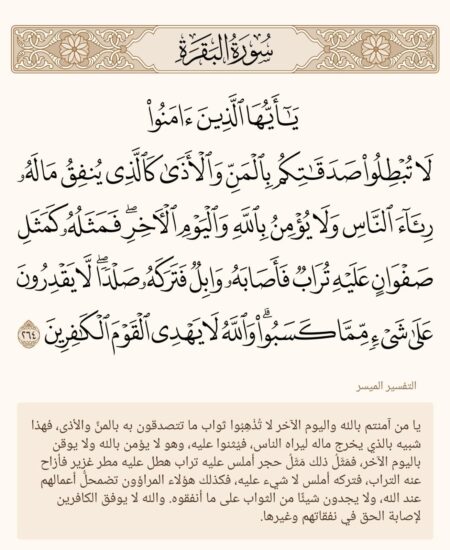 سُورَةُ البَقَرَةِ
يَـٰٓأَيُّهَا ٱلَّذِينَ ءَامَنُوا۟
لَا تُبْطِلُوا۟ صَدَقَـٰتِكُم بِٱلْمَنِّ وَٱلْأَذَىٰ كَٱلَّذِى يُنفِقُ مَالَهُۥ
رِئَآءَ ٱلنَّاسِ وَلَا يُؤْمِنُ بِٱللَّهِ وَٱلْيَوْمِ ٱلْـَٔاخِرِ ۖ فَمَثَلُهُۥ كَمَثَلِ
صَفْوَانٍ عَلَيْهِ تُرَابٌ فَأَصَابَهُۥ وَابِلٌ فَتَرَكَهُۥ صَلْدًا ۖ لَّا يَقْدِرُونَ
عَلَىٰ شَىْءٍ مِّمَّا كَسَبُوا۟ ۗ وَٱللَّهُ لَا يَهْدِى ٱلْقَوْمَ ٱلْكَـٰفِرِينَ ٢٦٤
التفسير الميسر
يا من آمنتم بالله واليوم الآخر لا تُذْهِبُوا ثواب ما تتصدقون به بالمنّ والأذى، فهذا
شبيه بالذي يخرج ماله ليراه الناس، فيُثنوا عليه، وهو لا يؤمن بالله ولا يوقن
باليوم الآخر، فمَثَلُ ذلك مَثَلُ حجر أملس عليه تراب هطل عليه مطر غزير فأزاح
عنه التراب، فتركه أملس لا شيء عليه، فكذلك هؤلاء المراؤون تضمحلُّ أعمالهم
عند الله، ولا يجدون شيئًا من الثواب على ما أنفقوه. والله لا يوفق الكافرين
لإصابة الحق في نفقاتهم وغيرها.